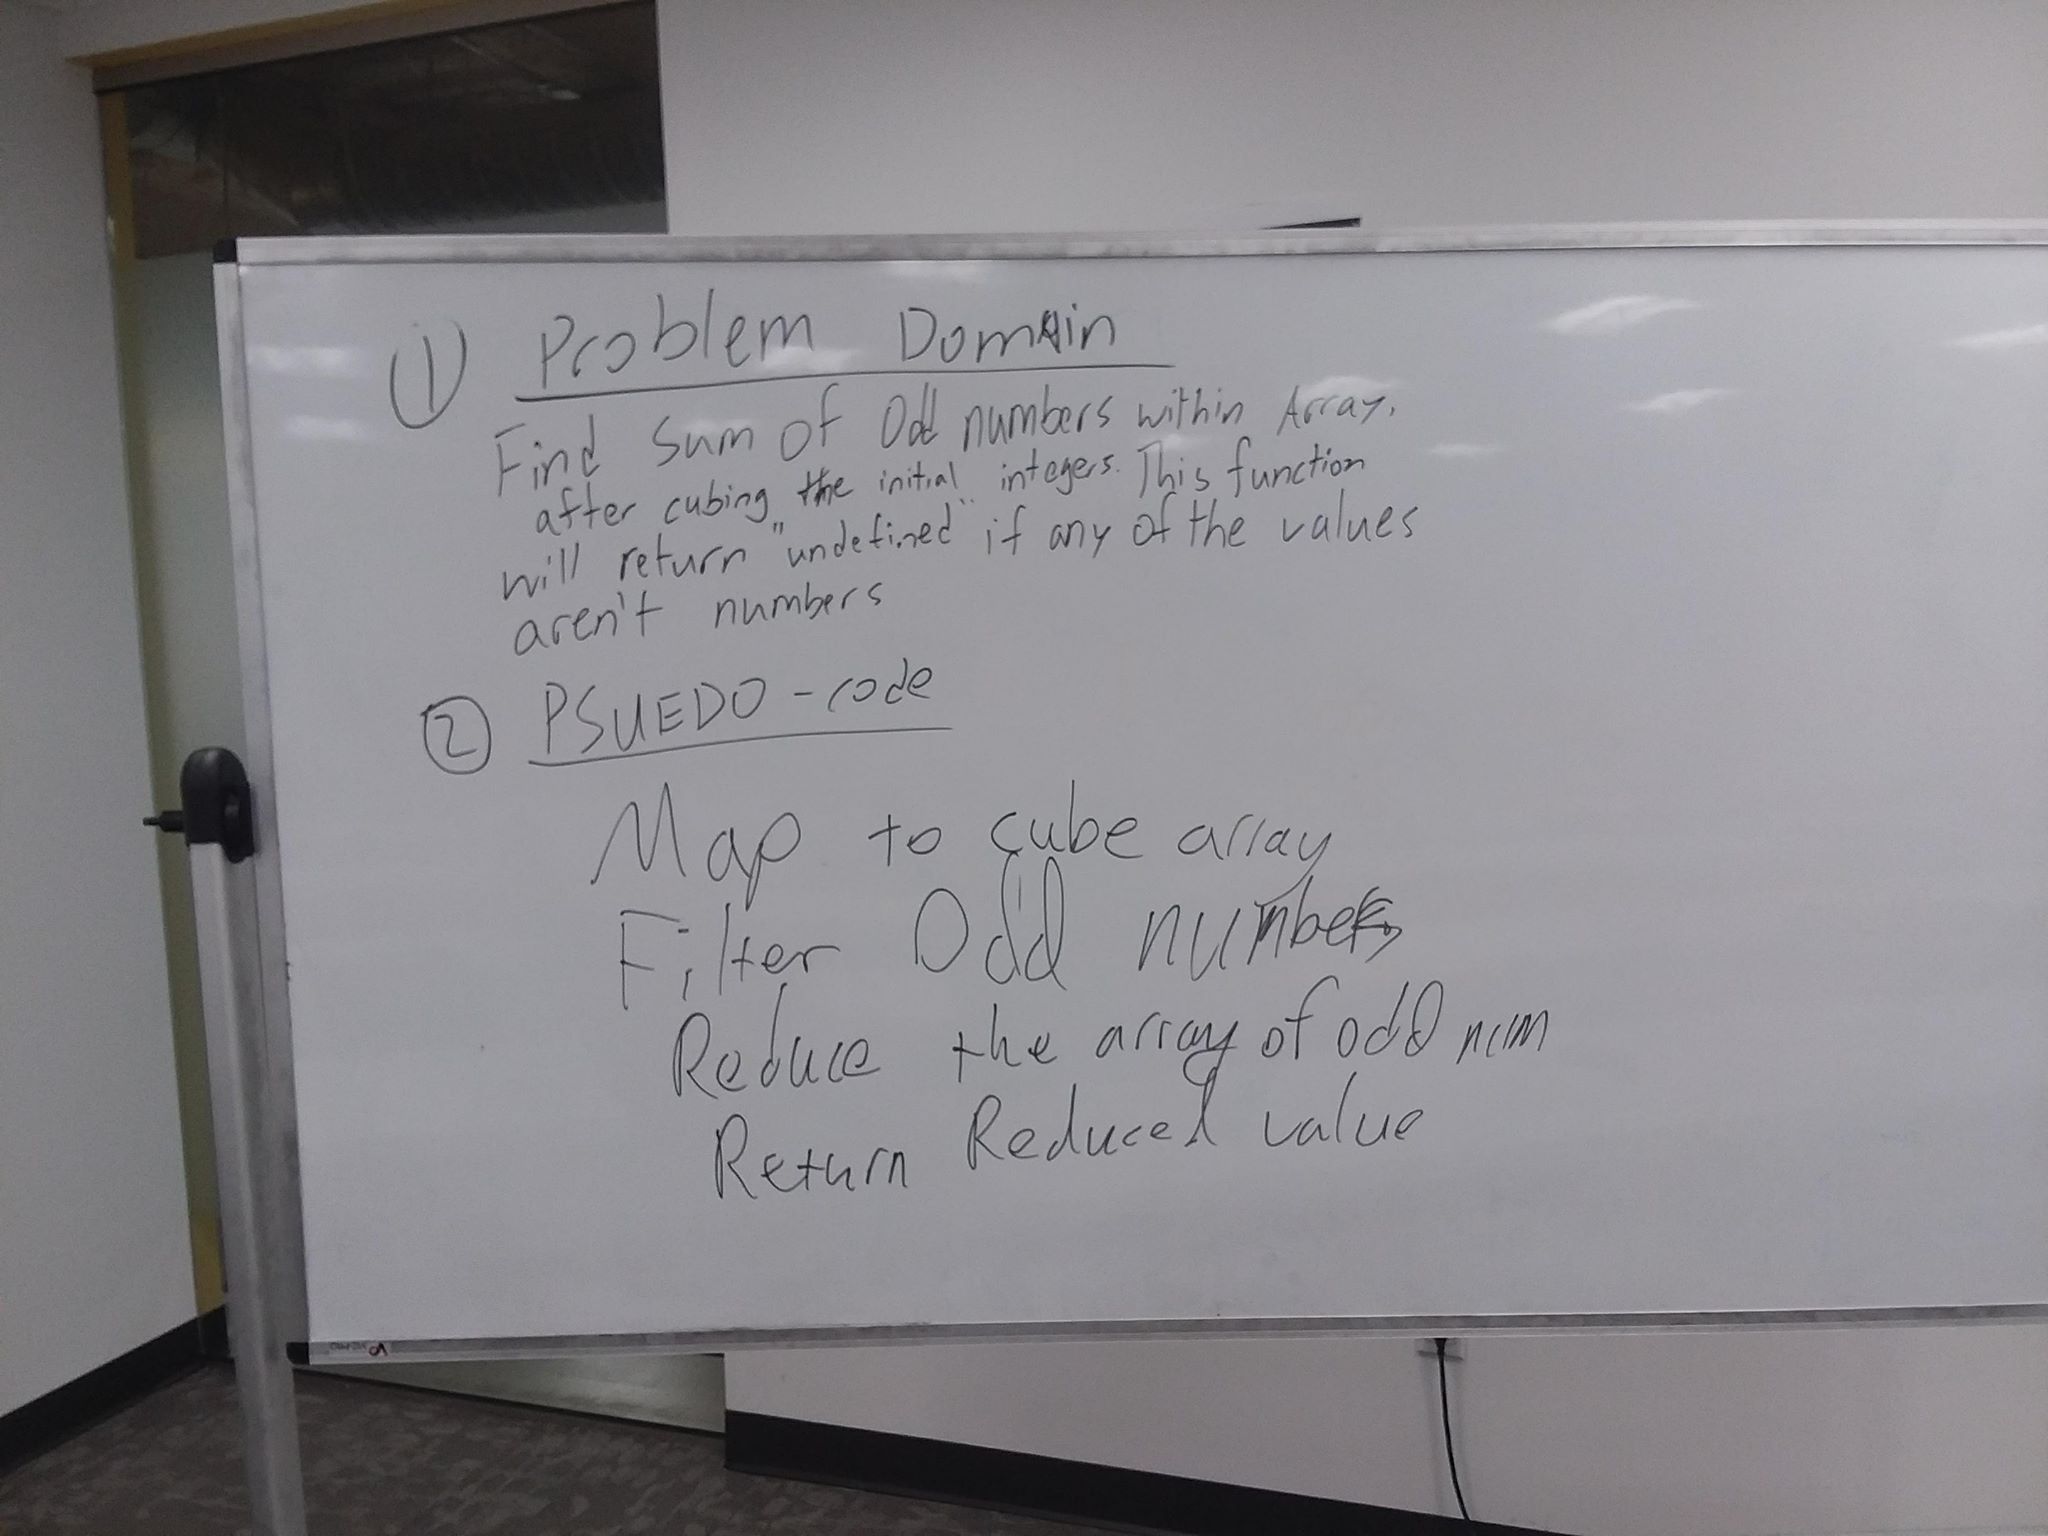 ① Problem Domain
Find Sum of Odd numbers within Array.
after cubing the initial integers. This function
will return "undefined" if any of the values
aren't numbers
② PSUEDO-code
Map to cube array
Filter Odd numbers
Reduce the array of odd num
Return Reduced value